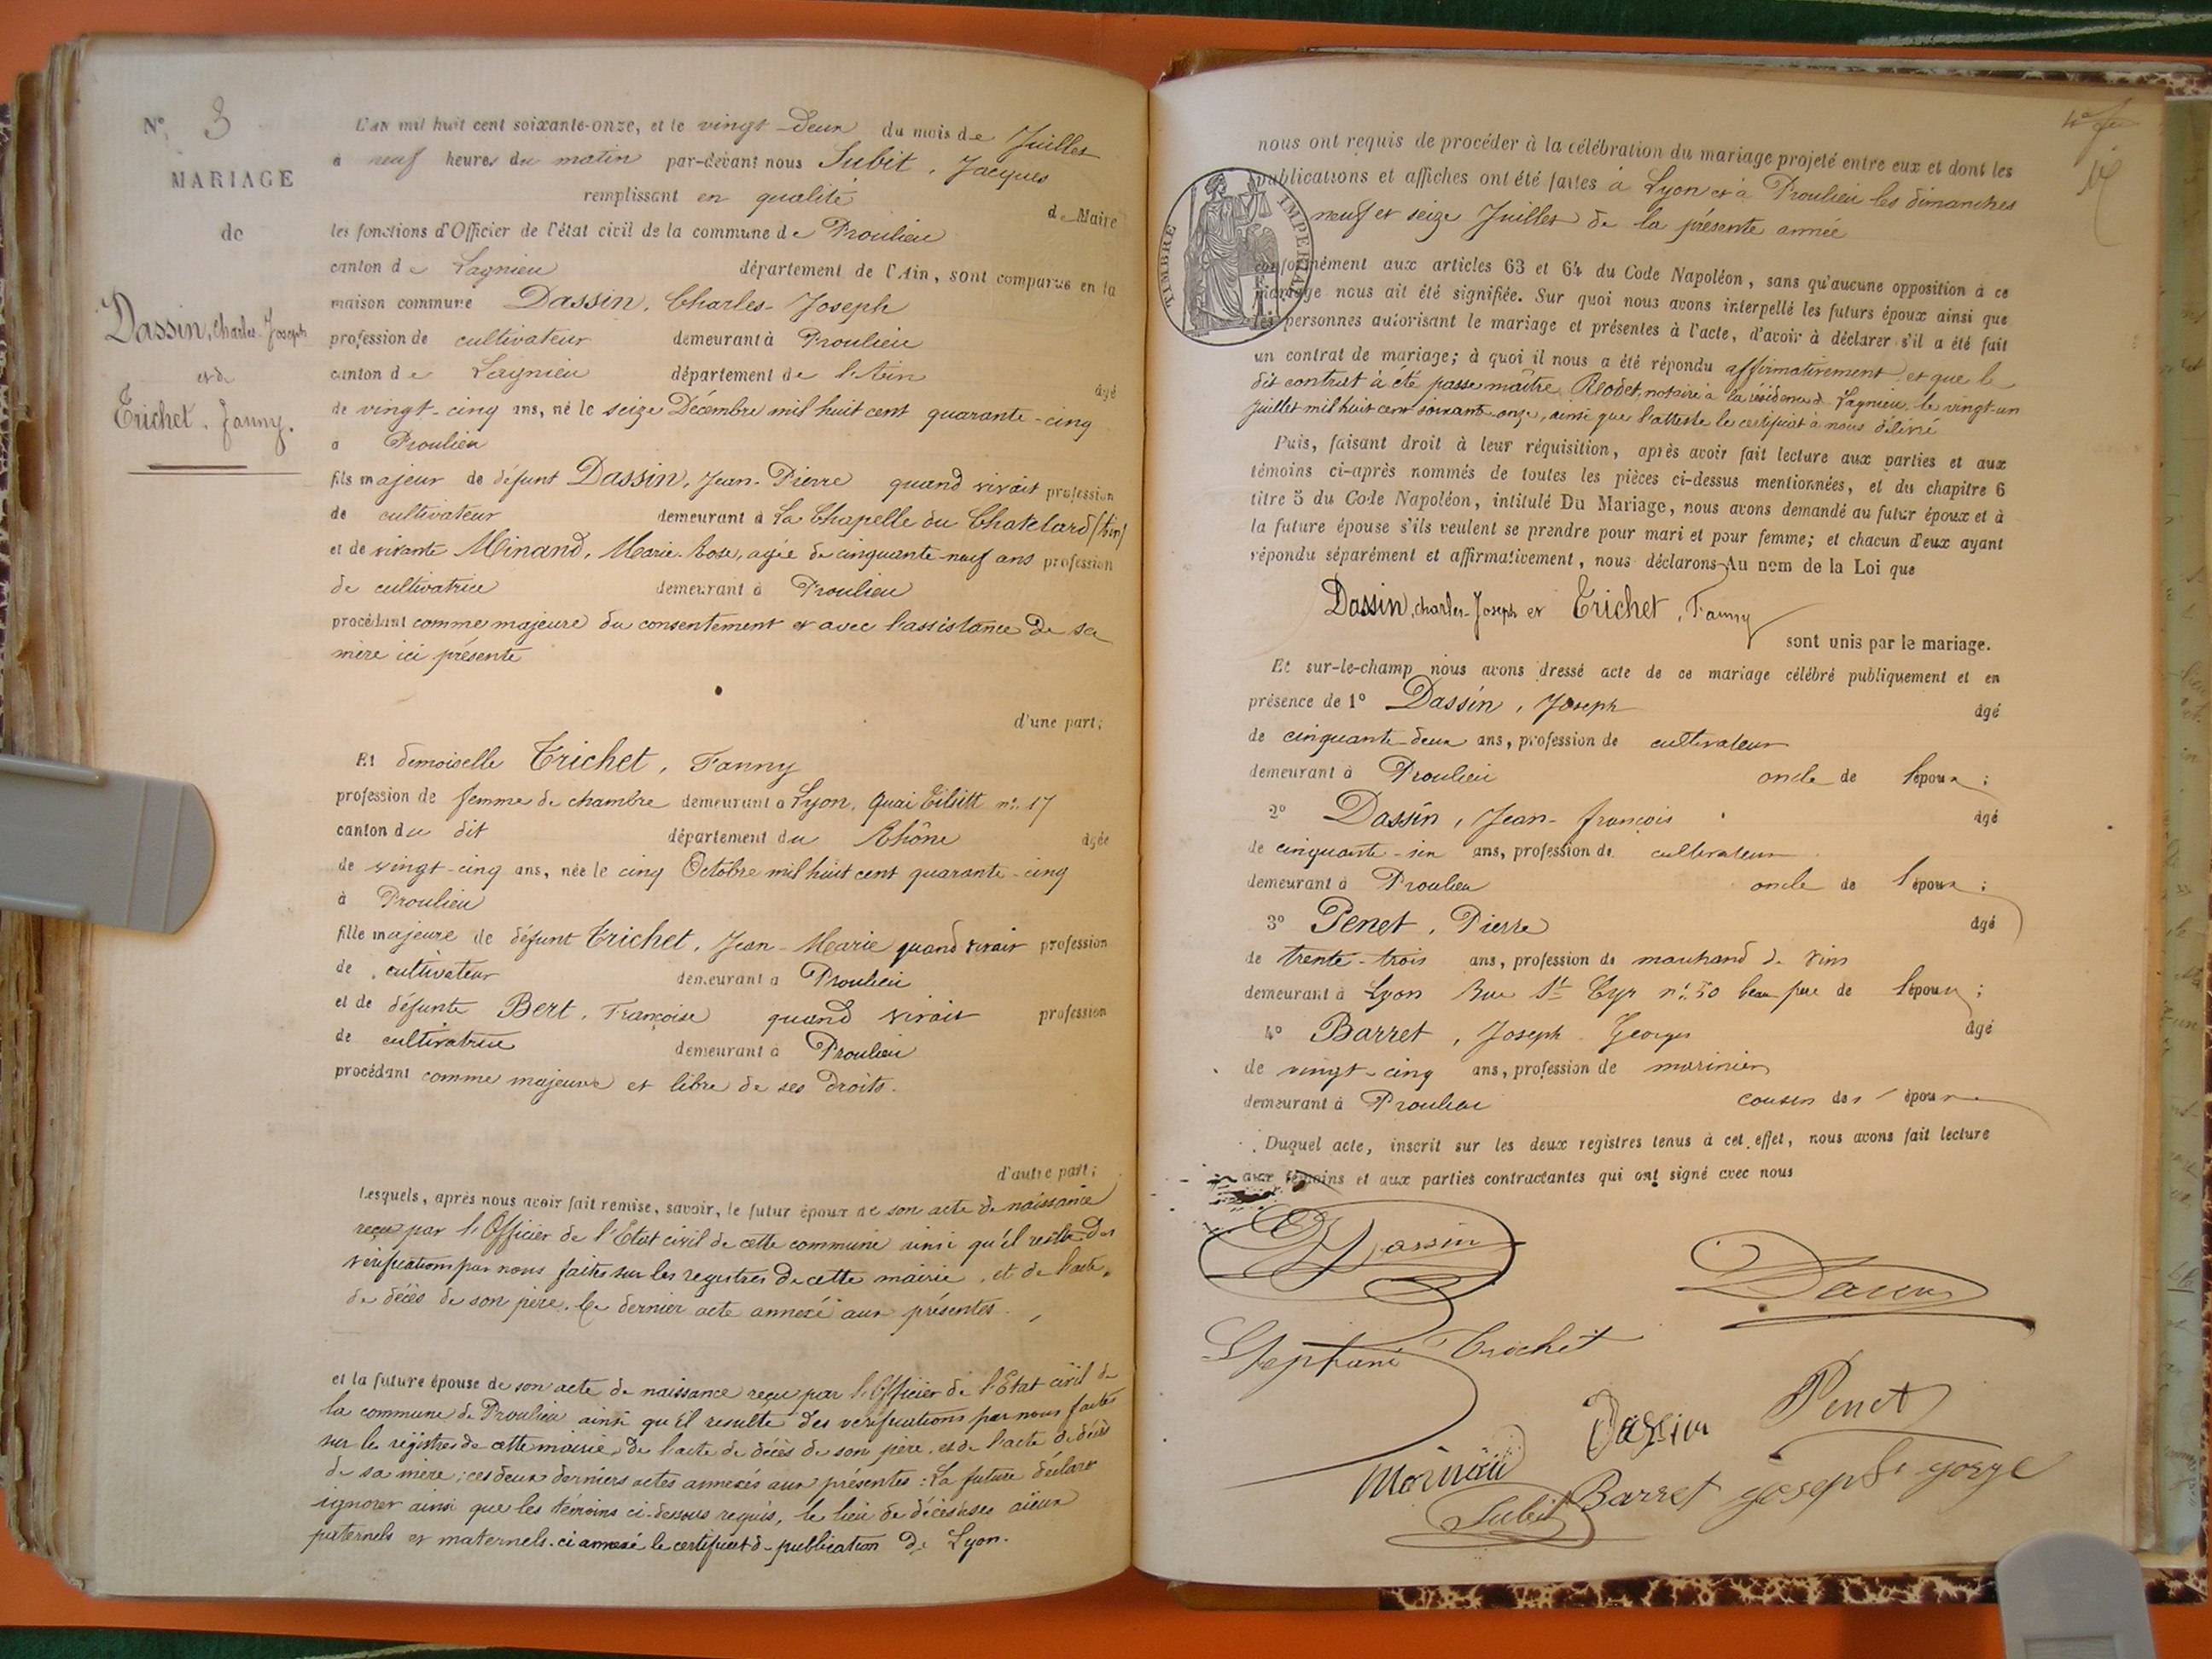 N° 3
MARIAGE
de
Dassin, Charles-Joseph
et de
Trichet, Fanny.
L'an mil huit cent soixante-onze, et le vingt-deux du mois de Juillet
à neuf heures du matin par-devant nous Subit, Jacques
remplissant en qualité de Maire
les fonctions d'Officier de l'état civil de la commune de Proulieu
canton de Lagnieu département de l'Ain, sont comparus en la
maison commune Dassin, Charles-Joseph
profession de cultivateur demeurant à Proulieu
canton de Lagnieu département de l'Ain âgé
de vingt-cinq ans, né le seize Décembre mil huit cent quarante-cinq
à Proulieu
fils majeur de défunt Dassin, Jean-Pierre quand vivait profession
de cultivateur demeurant à La Chapelle du Chatelard (Ain)
et de vivante Minand, Marie-Rose, agée de cinquante-neuf ans profession
de cultivatrice demeurant à Proulieu
procédant comme majeure du consentement et avec l'assistance de sa
mère ici présente
d'une part;
Et demoiselle Trichet, Fanny
profession de femme de chambre demeurant à Lyon, Quai Tilsitt n° 17
canton du dit département du Rhône âgée
de vingt-cinq ans, née le cinq Octobre mil huit cent quarante-cinq
à Proulieu
fille majeure de défunt Trichet, Jean-Marie quand vivait profession
de cultivateur demeurant à Proulieu
et de défunte Bert, Françoise quand vivait profession
de cultivatrice demeurant à Proulieu
procédant comme majeure et libre de ses droits.
d'autre part;
Lesquels, après nous avoir fait remise, savoir, le futur époux de son acte de naissance
reçu par l'Officier de l'Etat civil de cette commune ainsi qu'il resulte des
vérifications par nous faites sur les registres de cette mairie, et de l'acte
de décès de son père. Ce dernier acte annexé aux présentes.
et la future épouse de son acte de naissance reçu par l'Officier de l'Etat civil de
la commune de Proulieu ainsi qu'il resulte des verifications par nous faites
sur les registres de cette mairie, de l'acte de décès de son père, et de l'acte de décès
de sa mère; ces deux derniers actes annexés aux présentes: La future déclare
ignorer ainsi que les témoins ci-dessous requis, le lieu de décès de ses aïeux
paternels et maternels. ci annexé le certificat de publication de Lyon.
nous ont requis de procéder à la célébration du mariage projeté entre eux et dont les
publications et affiches ont été faites à Lyon et à Proulieu les dimanches
neuf et seize Juillet de la présente année
TIMBRE IMPERIAL
conformément aux articles 63 et 64 du Code Napoléon, sans qu'aucune opposition à ce
mariage nous ait été signifiée. Sur quoi nous avons interpellé les futurs époux ainsi que
les personnes autorisant le mariage et présentes à l'acte, d'avoir à déclarer s'il a été fait
un contrat de mariage; à quoi il nous a été répondu affirmativement et que le
dit contrat à été passé maître Rodet, notaire à la résidence de Lagnieu, le vingt-un
Juillet mil huit cent soixante-onze, ainsi que l'atteste le certificat à nous délivré
Puis, faisant droit à leur réquisition, après avoir fait lecture aux parties et aux
témoins ci-après nommés de toutes les pièces ci-dessus mentionnées, et du chapitre 6
titre 5 du Code Napoléon, intitulé Du Mariage, nous avons demandé au futur époux et à
la future épouse s'ils veulent se prendre pour mari et pour femme; et chacun d'eux ayant
répondu séparément et affirmativement, nous déclarons Au nom de la Loi que
Dassin, Charles-Joseph et Trichet, Fanny
sont unis par le mariage.
Et sur-le-champ nous avons dressé acte de ce mariage célébré publiquement et en
présence de 1° Dassin, Joseph âgé
de cinquante-deux ans, profession de cultivateur
demeurant à Proulieu oncle de l'époux;
2° Dassin, Jean-françois âgé
de cinquante-six ans, profession de cultivateur
demeurant à Proulieu oncle de l'époux;
3° Penet, Pierre âgé
de trente-trois ans, profession de marchand de vins
demeurant à Lyon Rue St Cyr n° 50 beau frère de l'époux;
4° Barret, Joseph Georges âgé
de vingt-cinq ans, profession de marinier
demeurant à Proulieu cousin des époux
Duquel acte, inscrit sur les deux registres tenus à cet effet, nous avons fait lecture
aux témoins et aux parties contractantes qui ont signé avec nous
Dassin
Trichet
Dassin
Penet
Subit
Barret joseph gorge